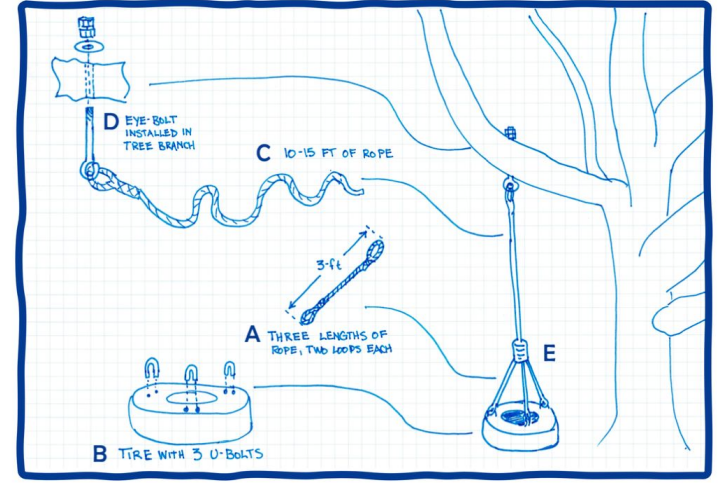 D EYE-BOLT
INSTALLED IN
TREE BRANCH
C 10-15 FT OF ROPE
3-ft
A THREE LENGTHS OF
ROPE, TWO LOOPS EACH
E
B TIRE WITH 3 U-BOLTS